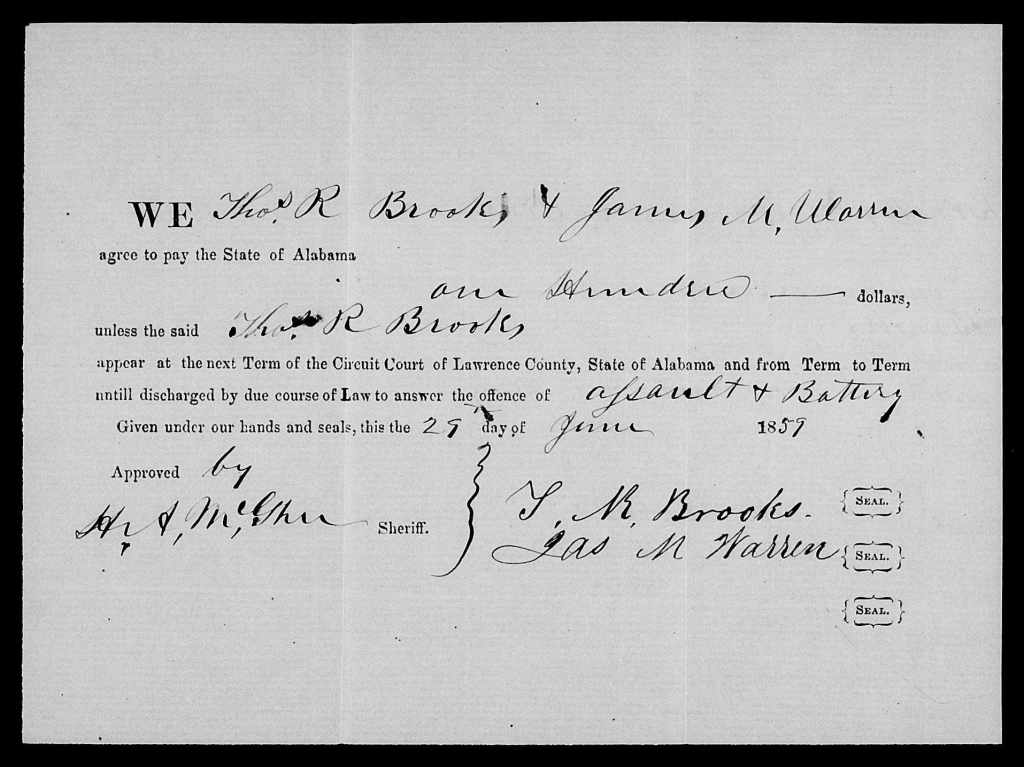 WE Thos. R Brooks & James M. Warren
agree to pay the State of Alabama
one Hundred —— dollars,
unless the said Thos. R Brooks
appear at the next Term of the Circuit Court of Lawrence County, State of Alabama and from Term to Term
untill discharged by due course of Law to answer the offence of assault & Battery
Given under our hands and seals, this the 29 day of June 1859
Approved by
H. A. McGhee Sheriff.
T. R. Brooks. SEAL.
Jas M Warren SEAL.
SEAL.